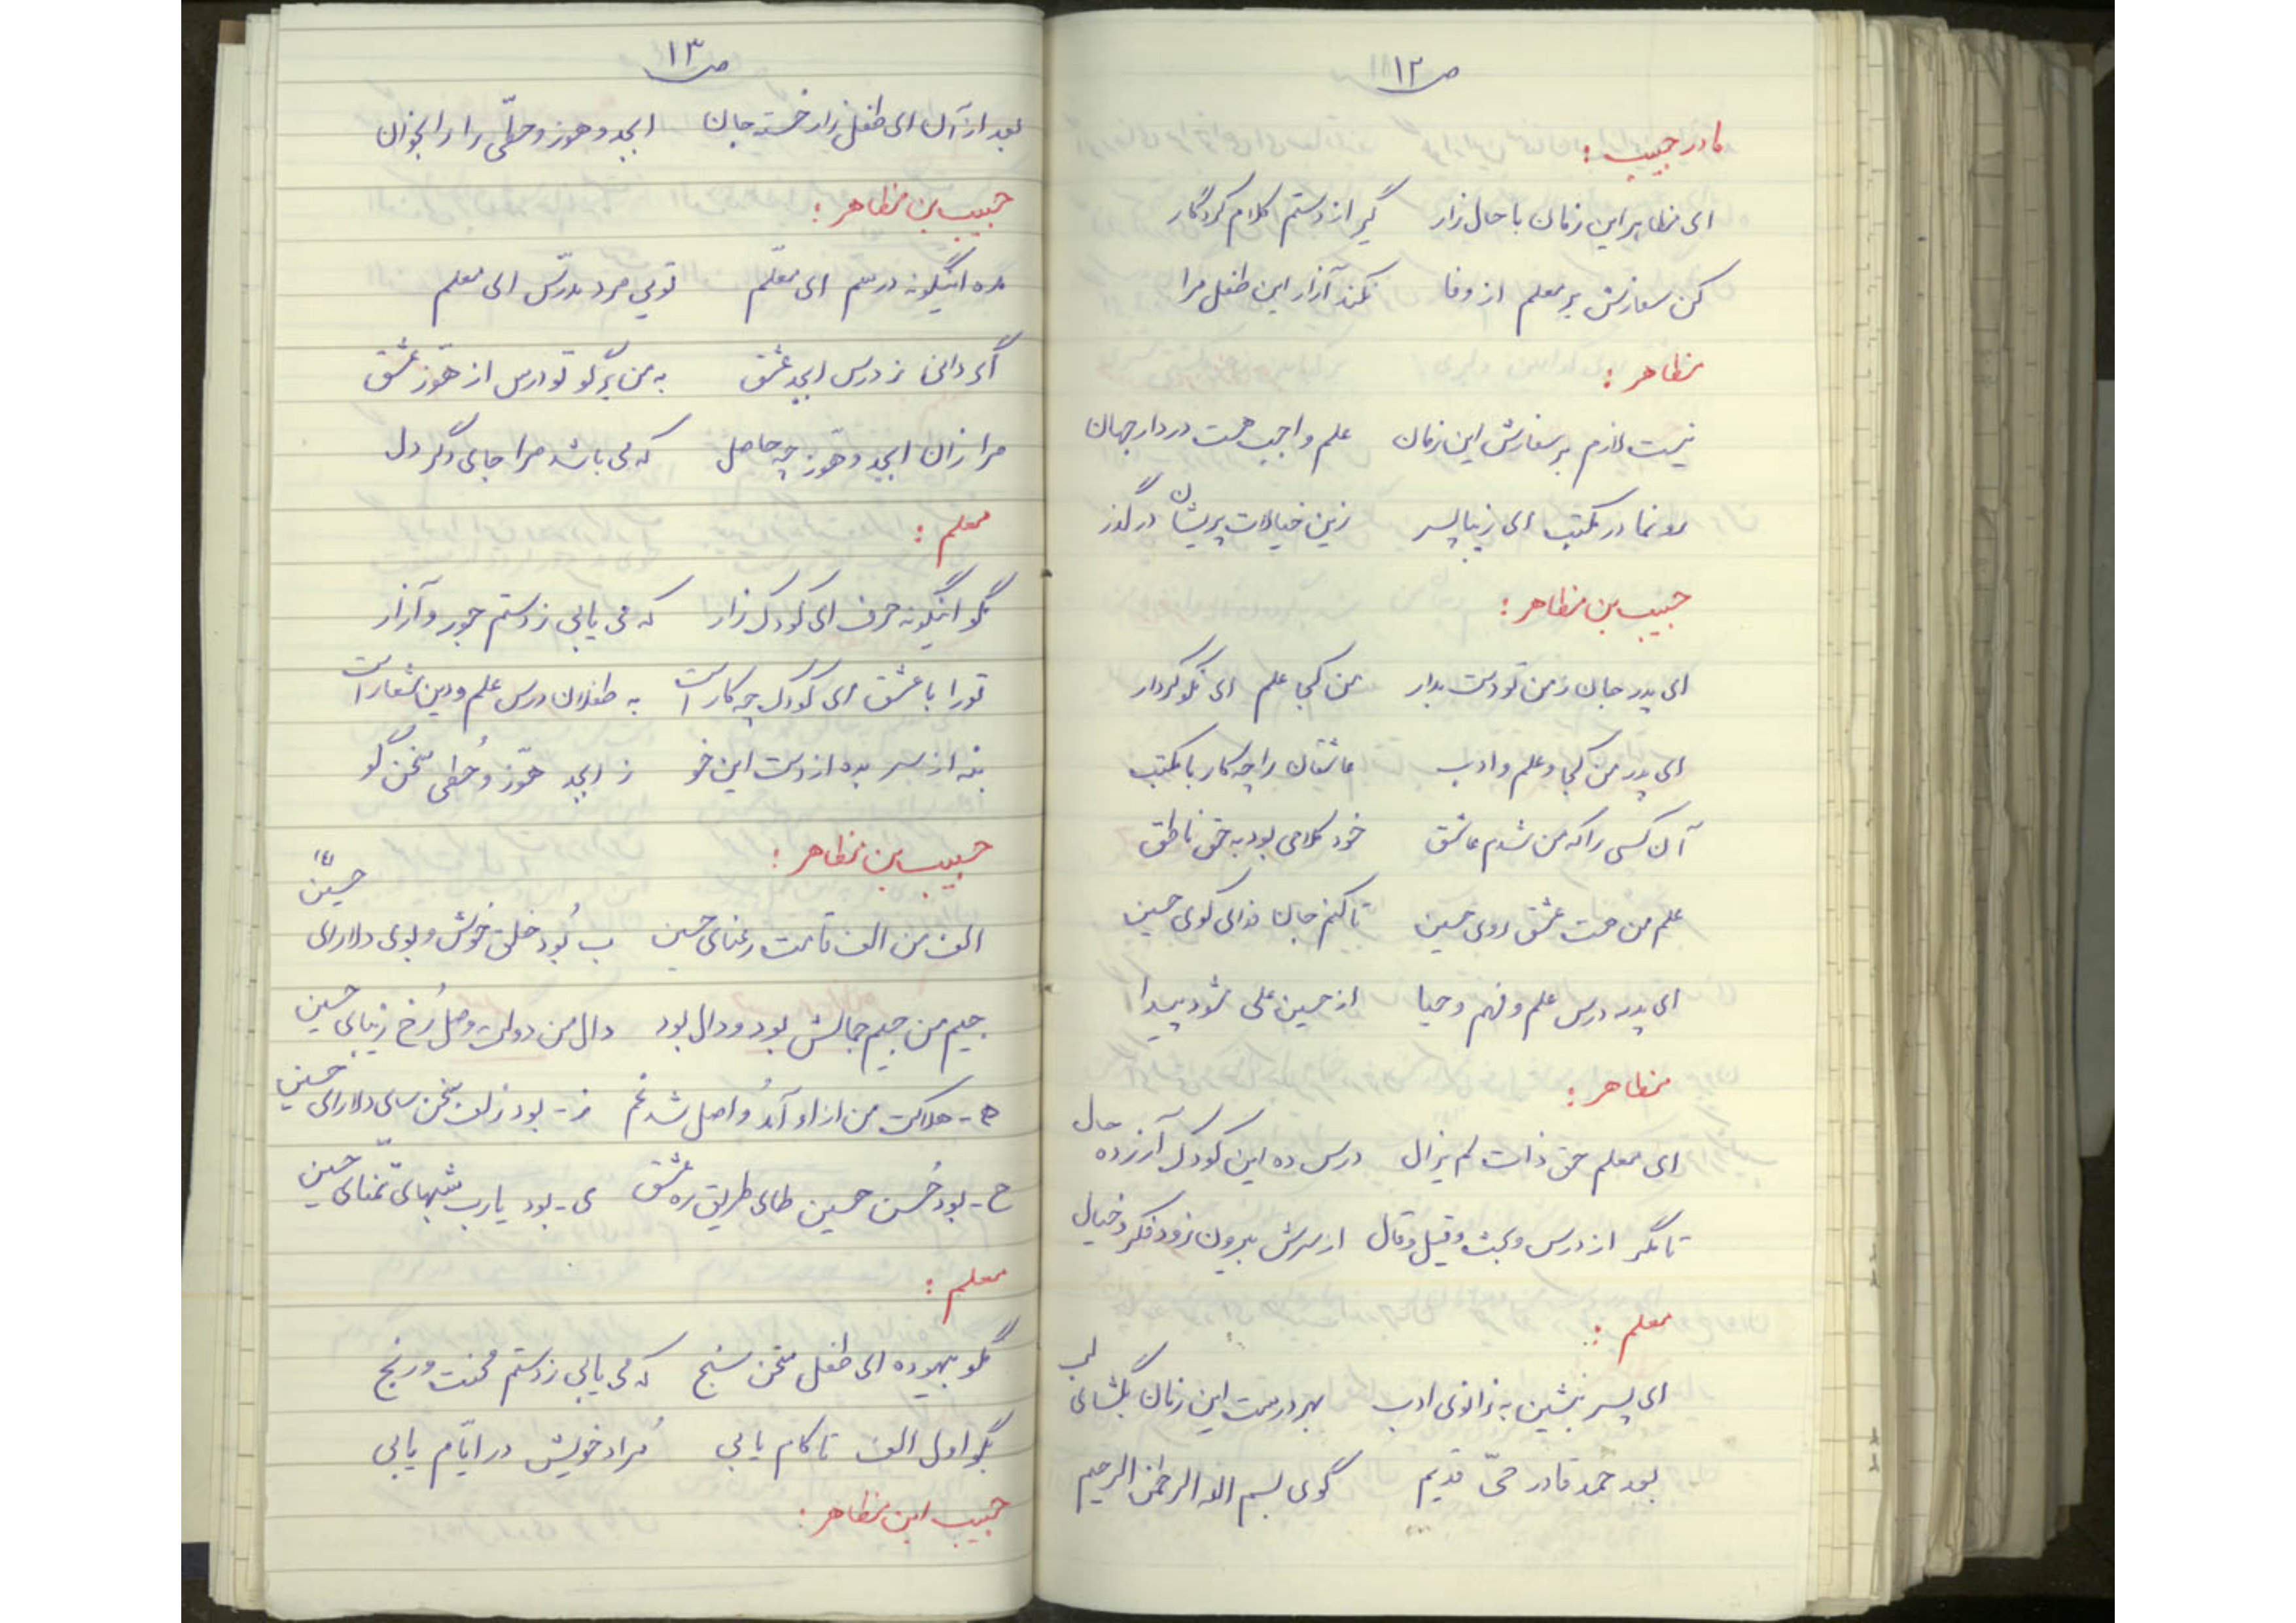 ص ۱۲
مادر حبیب :
ای مظاهر این زمان با حال زار گیر از دستم کلام کردگار
کن سفارش بر معلم از وفا نکند آزار این طفل مرا
مظاهر :
نیست لازم بر سفارش این زمان علم واجب هست در دار جهان
رو نما در مکتب ای زیبا پسر زین خیالات پریشان درگذر
حبیب بن مظاهر :
ای پدر جان ز من تو دست بدار من کجا علم ای نکو کردار
ای پدر من کجا و علم و ادب عاشقان را چه کار با مکتب
آن کسی را که من شدم عاشق خود کلامی بود به حق ناطق
علم من هست عشق روی حسین تا کنم جان فدای کوی حسین
ای پدر درس علم و فهم و حیا از حسین علی شود پیدا
مظاهر :
ای معلم حق ذات لم یزال درس ده این کودک آزرده حال
تا مگر از درس و بحث و قیل و قال از سرش بیرون رود فکر و خیال
معلم :
ای پسر بنشین به زانوی ادب بهر درست این زمان بگشای لب
بعد حمد قادر حیّ قدیم گوی بسم الله الرحمن الرحیم
ص ۱۳
بعد از آن ای طفل زار خسته جان ابجد و هوز و حطّی را بخوان
حبیب بن مظاهر :
مده اینگونه درسم ای معلّم تویی مرد مدرّس ای معلم
اگر دانی ز درس ابجد عشق به من برگو تو درس از هوّز عشق
مرا زان ابجد و هوّز چه حاصل که می باشد مرا جای دگر دل
معلم :
مگو اینگونه حرف ای کودک زار که می یابی ز دستم جور و آزار
تو را با عشق ای کودک چه کار است به طفلان درس علم و دین شعار است
بنه از سر بده از دست این خو ز ابجد هوّز و حُطی سخن گو
حبیب بن مظاهر :
الف من الف قامت رعنای حسین ب بُود خلق خوش و بوی دلارای حسین
جیم من جیم جمالش بود و دال بود دال من دولت وصل رُخ زیبای حسین
ه - هلاکت من از او آمدُ و اصل شد غم ز - بود زلف سخن سای دلارای حسین
ح - بود حُسن حسین طای طریق ره عشق ی - بود یارب شبهای تمنّای حسین
معلم :
مگو بیهوده ای طفل سخن سنج که می یابی ز دستم محنت و رنج
بگو اول الف تا کام یابی مُراد خویش در ایّام یابی
حبیب ابن مظاهر :